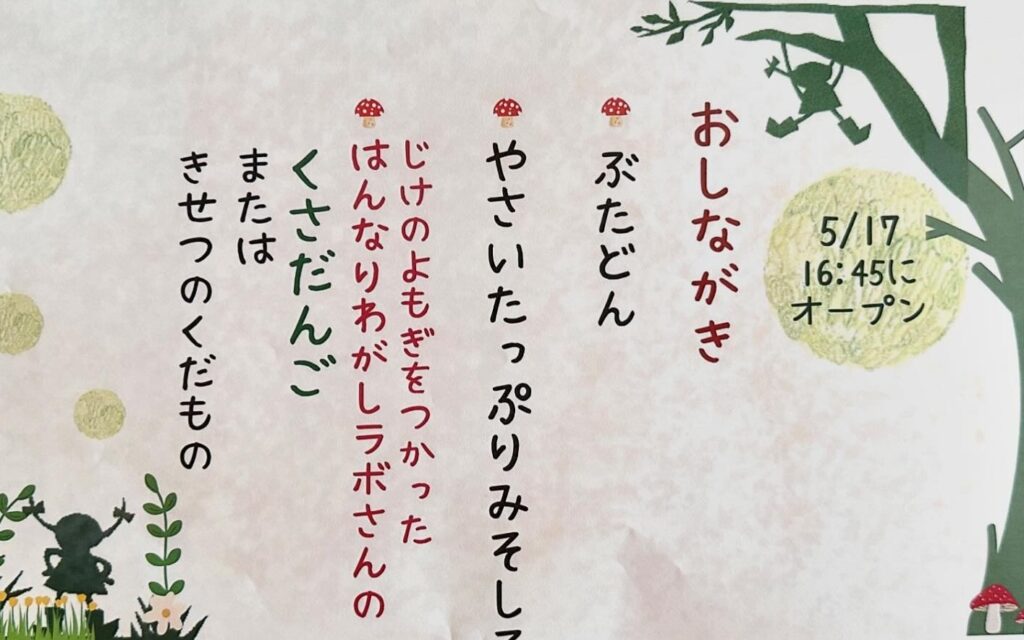 5/17
16:45に
オープン
おしながき
ぶたどん
やさいたっぷりみそしる
じけのよもぎをつかった
はんなりわがしラボさんの
くさだんご
または
きせつのくだもの